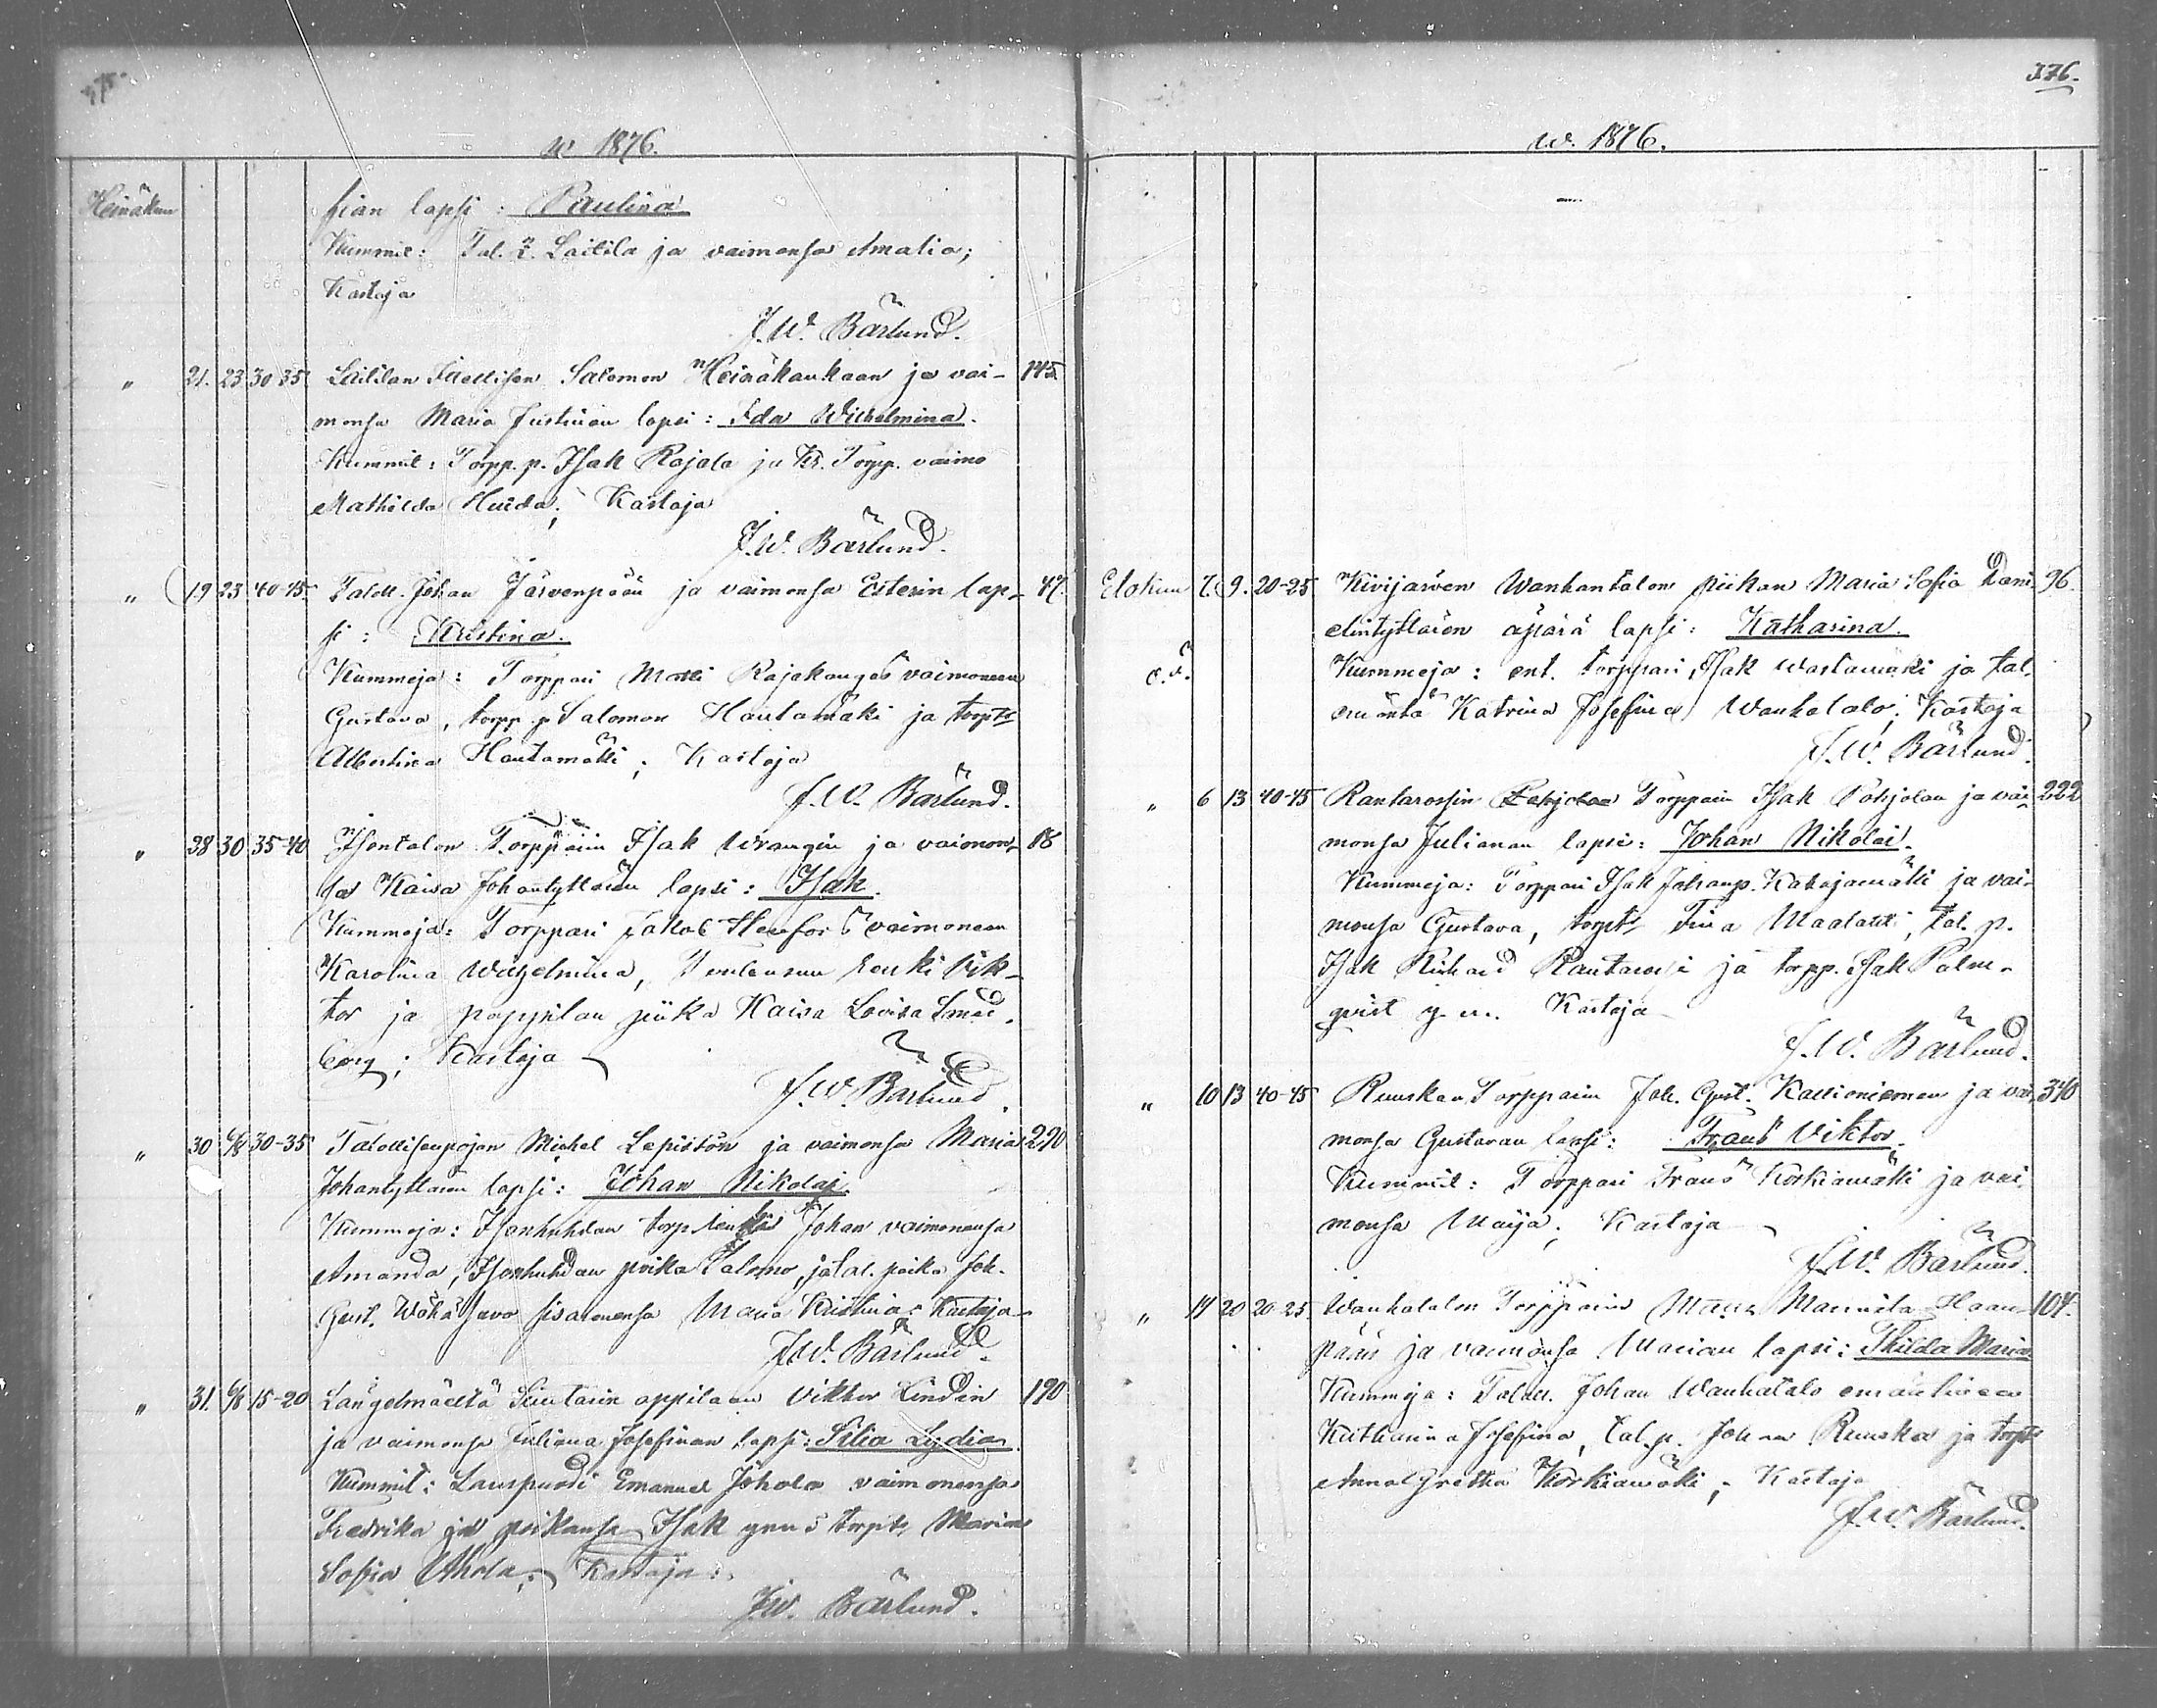 375.
w 1876.
Heinäkuu
sian lapsi: Paulina
Kummit: Tal. Laitila ja vaimonsa Amalia;
Kastaja
J.W. Bärlund.
" 21. 23 30 35 Laitilan Salomon Heinäkankaan ja vai- 145
monsa Maria Justinan lapsi: Ida Wilhelmina.
Kummit: Torpp. p. Isak Rajala ja Torpp. vaimo
Mathilda Huida; Kastaja
J.W. Bärlund.
" 19 23 40-45 Taloll. Johan Järvenpään ja vaimonsa Esterin lap- 47.
si: Kristina.
Kummeja: Torppari Matti Rajakangas vaimoneen
Gustava, torpp. p. Salomon Hautamäki ja torp.
Albertina Hautamäki; Kastaja
J.W. Bärlund.
" 28 30 35-40 Isontalon Torpparin Isak Wrangin ja vaimon- 86
sa Kaisa Johantyttären lapsi: Isak.
Kummeja: Torppari Jakob vaimoneen
Karolina Wilhelmina, renki Vik-
tor ja pappilan piika Kaisa Lovisa Smed-
berg; Kastaja
J.W. Bärlund.
" 30 6/8 30-35 Talollisenpojan Michel Lepistön ja vaimonsa Maria 290
Johantyttären lapsi: Johan Nikolai.
Kummeja: Johan vaimonensa
Amanda, poika Salomo, ja tal. poika Joh.
Gust. sisarenensa Maria Kristina; Kastaja
J.W. Bärlund.
" 31. 6/8 15-20 Längelmäeltä Suutarin oppilaan Viktor Lindin 190
ja vaimonsa Juliana Josefinan lapsi: Silia Lydia.
Kummit: Lauspuodi Emanuel Johola vaimonensa
Fredrika ja poikansa Isak ynnä torp. Maria
Sofia Ahola; Kastaja:
J.W. Bärlund.
376.
w. 1876.
Elokuu 7. 9. 20-25 Kivijärven Wanhantalon piikan Maria Sofia Dani- 96.
elintyttären äpärä lapsi: Katharina.
Kummeja: ent. torppari Isak Wastamäki ja tal.
emäntä Katrina Josefina Wanhatalo; Kastaja
J.W. Bärlund.
" 6 13 40-45 Rantarossin Torpparin Isak Pohjolan ja vai- 222
monsa Julianan lapsi: Johan Nikolai.
Kummeja: Torppari Isak Johanp. Katajamäki ja vai-
monsa Gustava, torp. Tiina, tal. p.
Isak Richard Rantarossi ja torpp. Isak Palm-
qvist y. m. Kastaja
J.W. Bärlund.
" 10 13 40-45 Ruuskan Torpparin Joh. Gust. Kallioniemen ja vai- 340
monsa Gustavan lapsi: Frans Viktor.
Kummit: Torppari Frans Korkiamäki ja vai-
monsa Maija; Kastaja
J.W. Bärlund.
" 14 20 20-25. Wanhatalon Torpparin Haan- 104.
pään ja vaimonsa Marian lapsi: Thilda Maria
Kummeja: Taloll. Johan Wanhatalo emäntineen
Katharina Josefina, tal. p. Johan Ruuska ja torp.
Anna Gretha Korkiamäki; Kastaja
J.W. Bärlund.